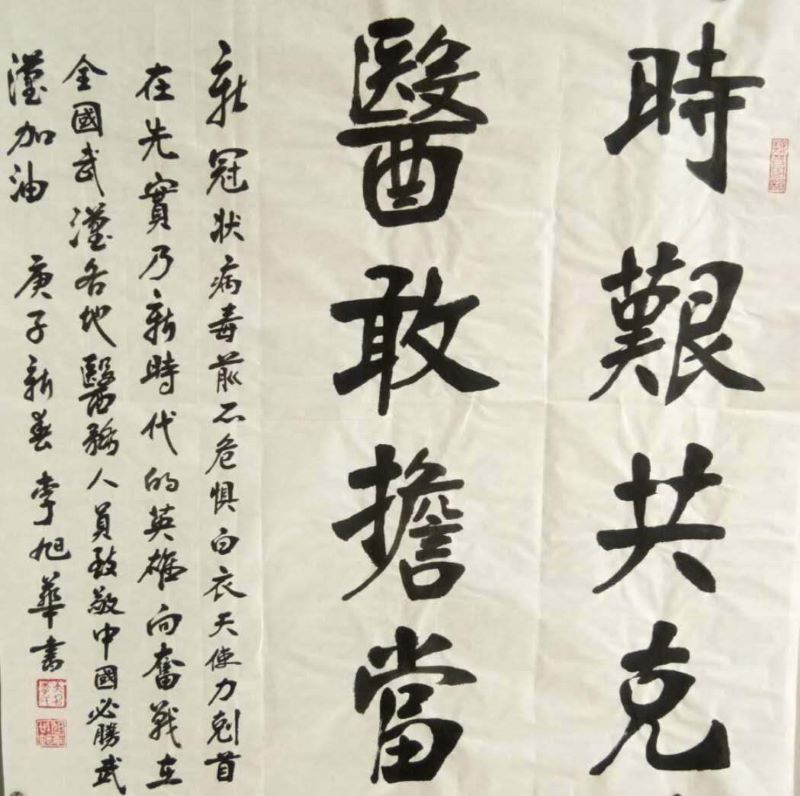 時艱共克
醫敢擔當
新冠狀病毒前不危懼白衣天使力剋首
在先實乃新時代的英雄向奮戰在
全國武漢各地醫務人員致敬中國必勝武
漢加油 庚子新春 李旭華書